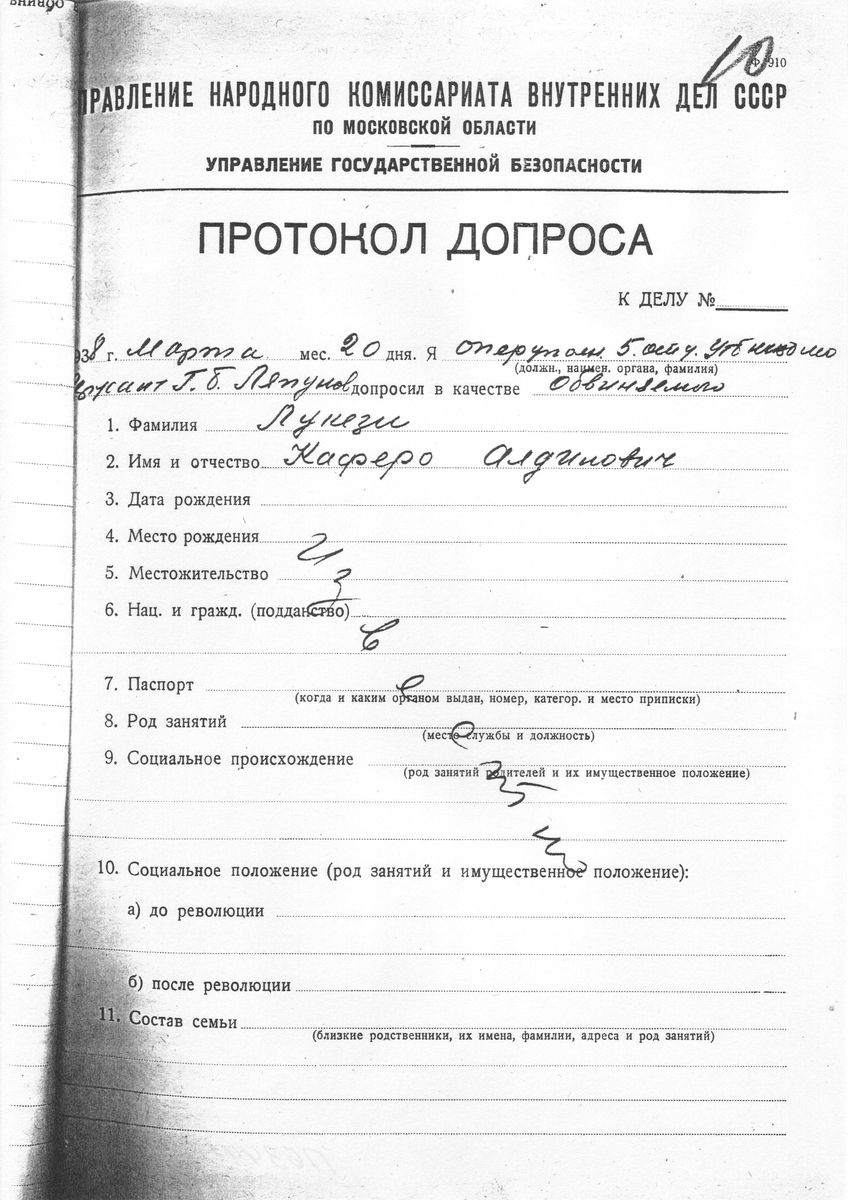 10
Ф. 910
УПРАВЛЕНИЕ НАРОДНОГО КОМИССАРИАТА ВНУТРЕННИХ ДЕЛ СССР
ПО МОСКОВСКОЙ ОБЛАСТИ
УПРАВЛЕНИЕ ГОСУДАРСТВЕННОЙ БЕЗОПАСНОСТИ
ПРОТОКОЛ ДОПРОСА
К ДЕЛУ №
938 г. Марта мес. 20 дня. Я оперуполн. 5. отд. УГБ
(должн., наимен. органа, фамилия)
Г. Б. Ляпунов допросил в качестве Обвиняемого
1. Фамилия Лукези
2. Имя и отчество Каферо Алдилович
3. Дата рождения
4. Место рождения
5. Местожительство
6. Нац. и гражд. (подданство)
7. Паспорт
(когда и каким органом выдан, номер, категор. и место приписки)
8. Род занятий
(место службы и должность)
9. Социальное происхождение
(род занятий родителей и их имущественное положение)
10. Социальное положение (род занятий и имущественное положение):
а) до революции
б) после революции
11. Состав семьи
(близкие родственники, их имена, фамилии, адреса и род занятий)